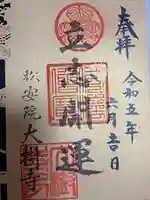 奉拝
令和五年
六月吉日
立志開運
大樹寺